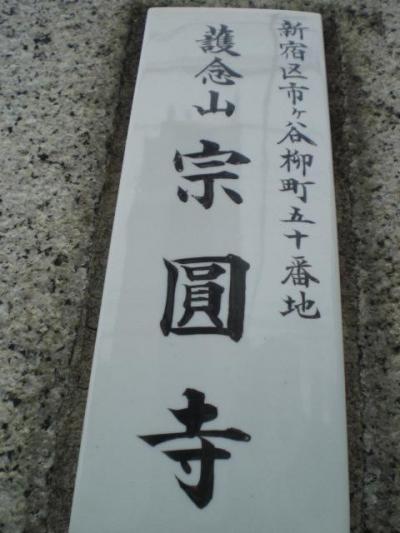 新宿区市ヶ谷柳町五十番地
護念山宗圓寺